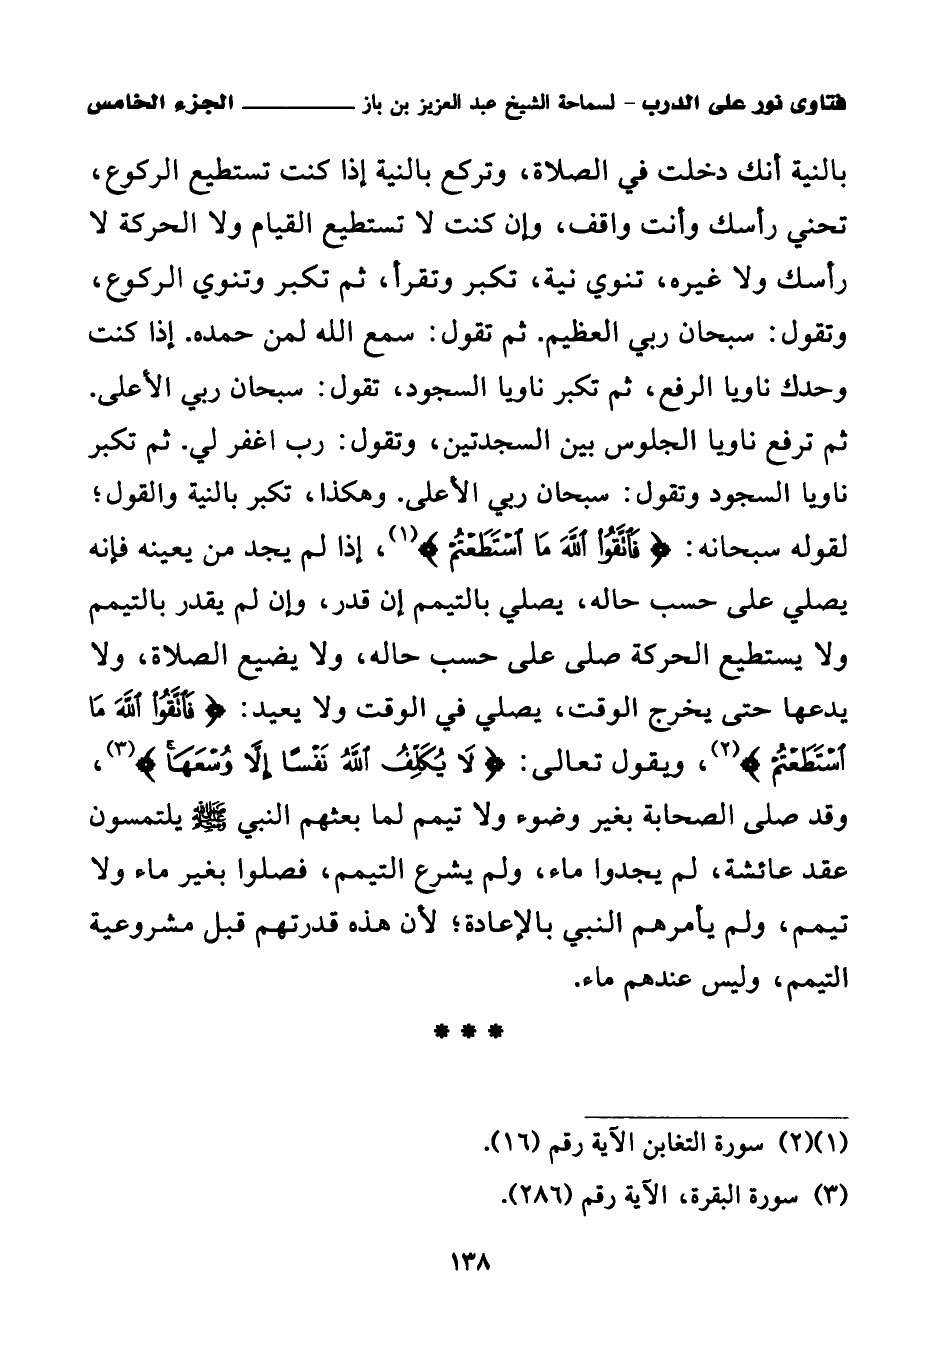 فتاوى نور على الدرب - لسماحة الشيخ عبد العزيز بن باز ــــــــــــ الجزء الخامس
بالنية أنك دخلت في الصلاة، وتركع بالنية إذا كنت تستطيع الركوع،
تحني رأسك وأنت واقف، وإن كنت لا تستطيع القيام ولا الحركة لا
رأسك ولا غيره، تنوي نية، تكبر وتقرأ، ثم تكبر وتنوي الركوع،
وتقول: سبحان ربي العظيم. ثم تقول: سمع الله لمن حمده. إذا كنت
وحدك ناويا الرفع، ثم تكبر ناويا السجود، تقول: سبحان ربي الأعلى.
ثم ترفع ناويا الجلوس بين السجدتين، وتقول: رب اغفر لي. ثم تكبر
ناويا السجود وتقول: سبحان ربي الأعلى. وهكذا، تكبر بالنية والقول؛
لقوله سبحانه: ﴿ فَٱتَّقُوا۟ ٱللَّهَ مَا ٱسْتَطَعْتُمْ ﴾(١)، إذا لم يجد من يعينه فإنه
يصلي على حسب حاله، يصلي بالتيمم إن قدر، وإن لم يقدر بالتيمم
ولا يستطيع الحركة صلى على حسب حاله، ولا يضيع الصلاة، ولا
يدعها حتى يخرج الوقت، يصلي في الوقت ولا يعيد: ﴿ فَٱتَّقُوا۟ ٱللَّهَ مَا
ٱسْتَطَعْتُمْ ﴾(٢)، ويقول تعالى: ﴿ لَا يُكَلِّفُ ٱللَّهُ نَفْسًا إِلَّا وُسْعَهَا ۚ ﴾(٣)،
وقد صلى الصحابة بغير وضوء ولا تيمم لما بعثهم النبي ﷺ يلتمسون
عقد عائشة، لم يجدوا ماء، ولم يشرع التيمم، فصلوا بغير ماء ولا
تيمم، ولم يأمرهم النبي بالإعادة؛ لأن هذه قدرتهم قبل مشروعية
التيمم، وليس عندهم ماء.
* * *
(١)(٢) سورة التغابن الآية رقم (١٦).
(٣) سورة البقرة، الآية رقم (٢٨٦).
١٣٨